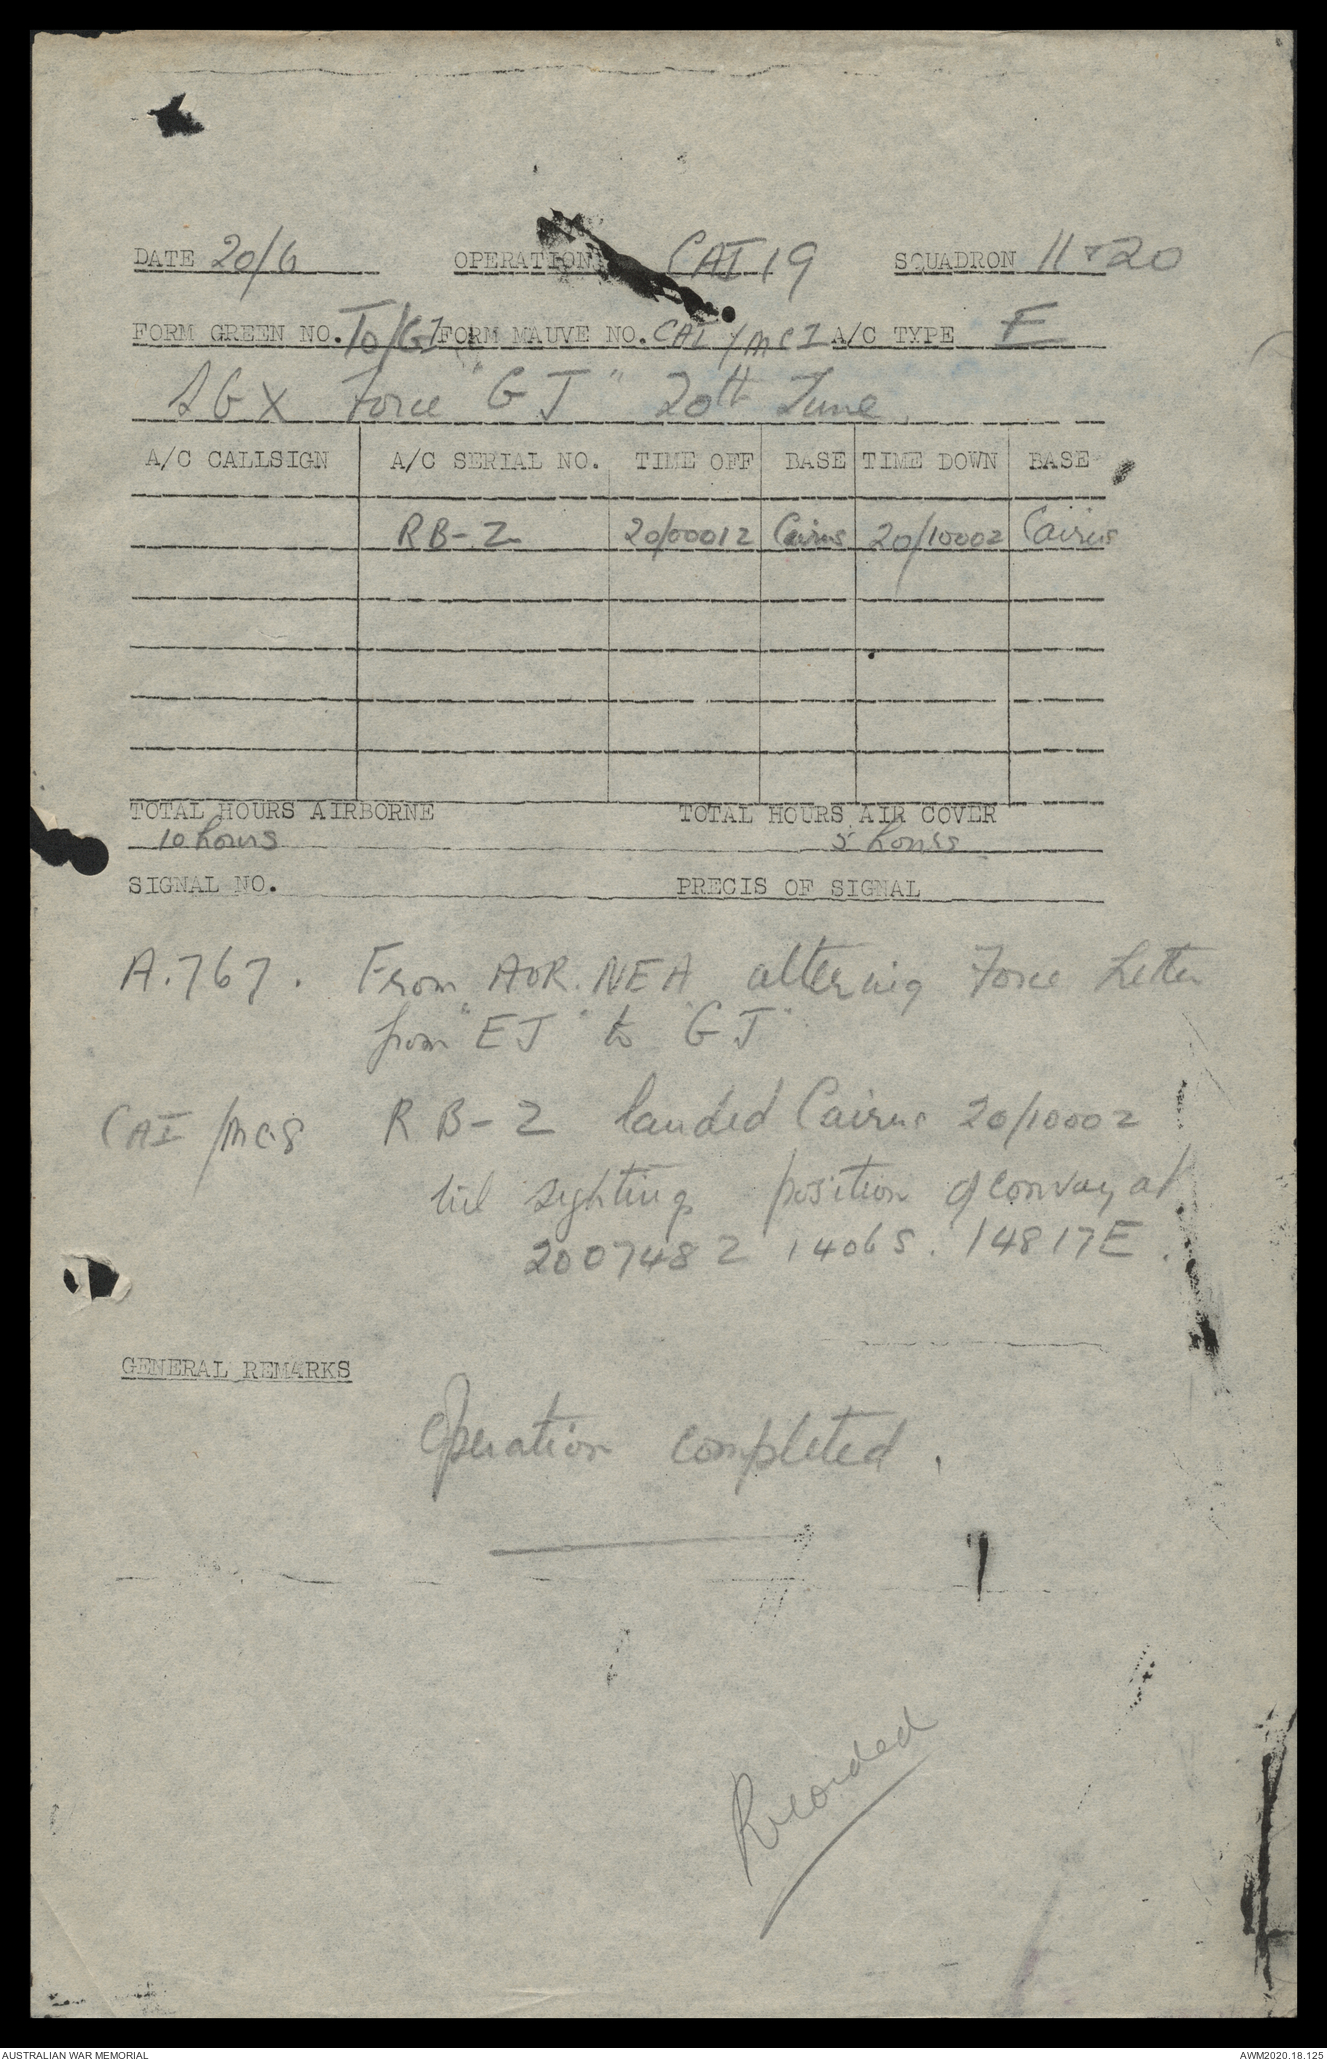 DATE 20/6 OPERATION CAI 19 SQUADRON 11 & 20
FORM GREEN NO. TO/G1 FORM MAUVE NO. CAI/MC1 A/C TYPE E
SGX Force "GJ" 20th June.
A/C CALLSIGN A/C SERIAL NO. TIME OFF BASE TIME DOWN BASE
RB-Z 20/0001Z Cairns 20/1000Z Cairns
TOTAL HOURS AIRBORNE TOTAL HOURS AIR COVER
10 hours 5 hours
SIGNAL NO. PRECIS OF SIGNAL
A.767. From AOR.NEA altering Force Letter
from "EJ" to "GJ"
CAI/MC8 RB-Z landed Cairns 20/1000Z
nil sighting position of convoy at
200748Z 1406S. 14817E.
GENERAL REMARKS
Operation completed.
Recorded
AUSTRALIAN WAR MEMORIAL AWM2020.18.125